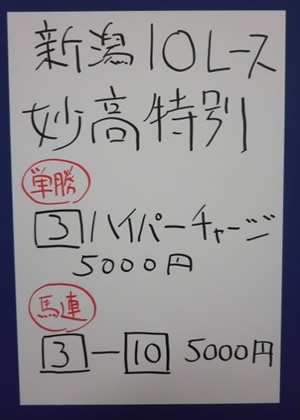 新潟10レース
妙高特別
単勝
3 ハイパーチャージ
5000円
馬連
3-10 5000円